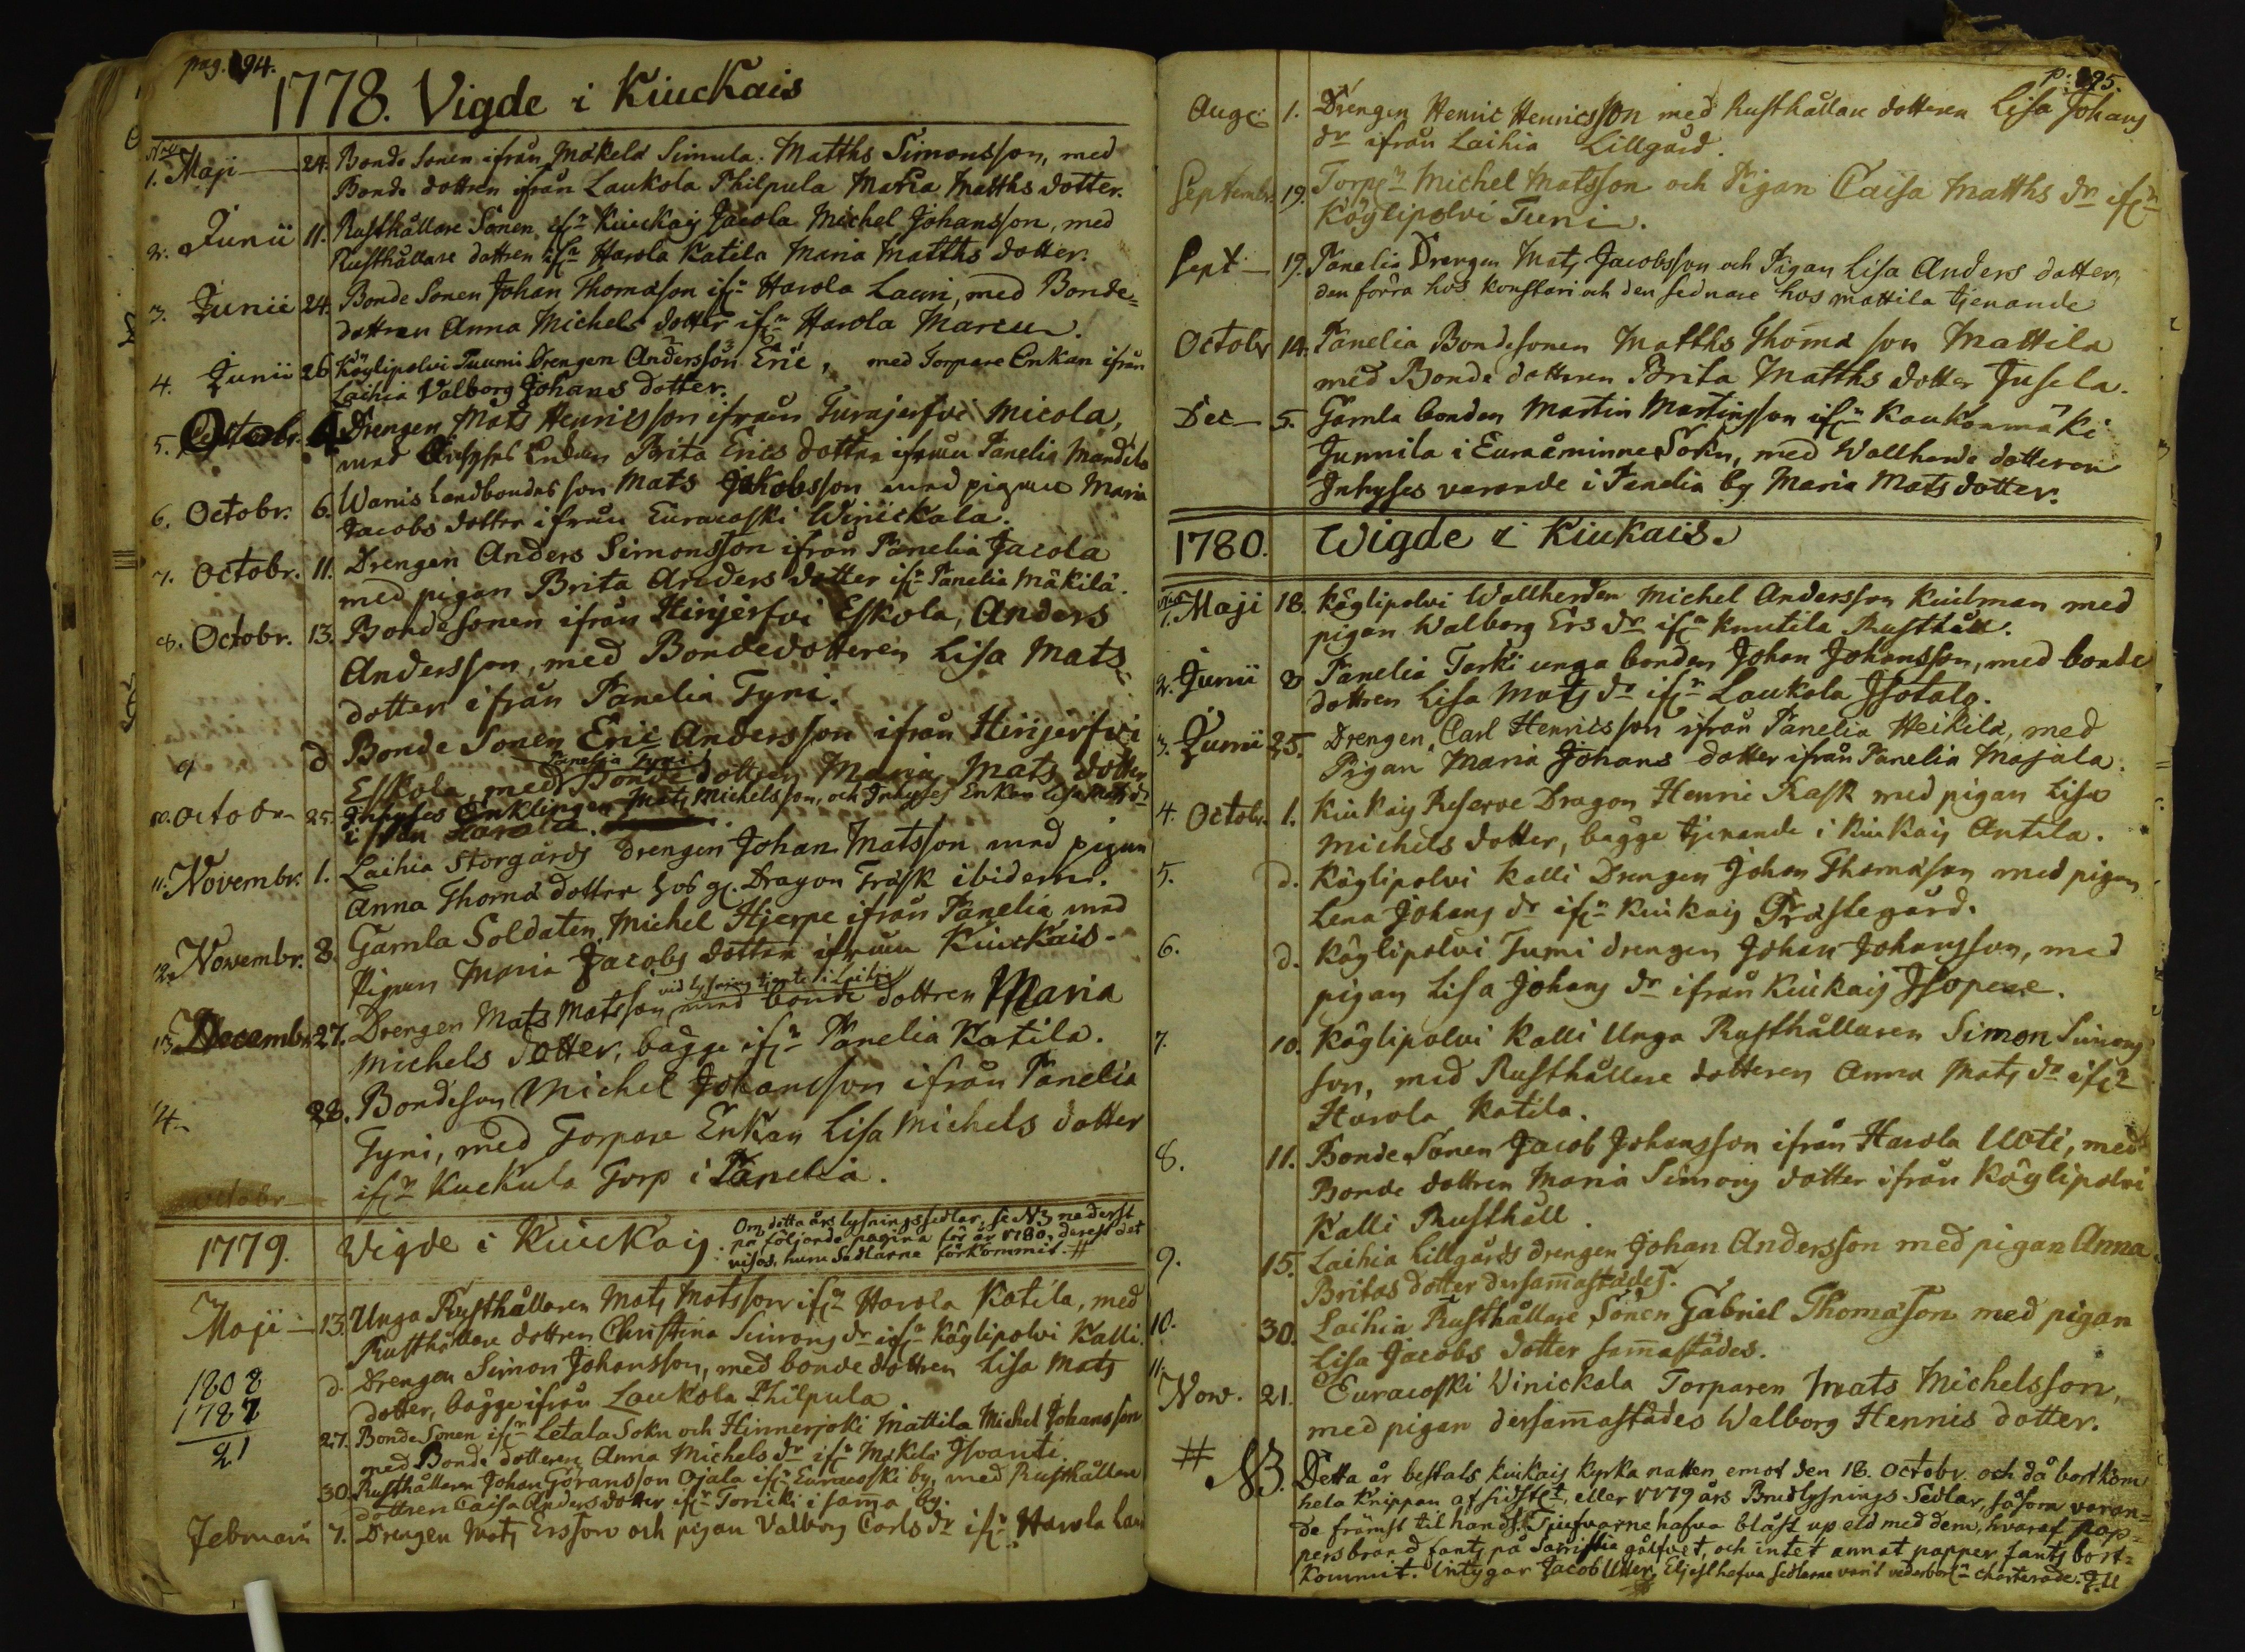 pag. 194.
1778. Vigde i Kiuckais
Nro
1. Maji 24. Bonde Sonen ifrån Mäkelä Simula. Matths Simonsson, med
Bonde dottren ifrån Laukola Philpula Maria Matths dotter.
2. Junii 11. Rusthållare Sonen ifrn Kiuckais Jacola Michel Johansson, med
Rusthållare dottren ifrn Harola Katila Maria Matths dotter.
3. Junii 24. Bonde Sonen Johan Thomasson ifrn Harola Lauri, med Bonde=
dottren Anna Michels dotter ifrn Harola Marcu.
4. Junii 26. Köylipolvi Tuumi Drengen Andersson Eric, med Torpare Enkan ifrån
Laihia Valborg Johans dotter.
5. Octobr. 4. Drengen Mats Henricsson ifrån Turajerfvi Micola,
med Inhyses Enkan Brita Erics dotter ifrån Panelia Mandila
6. Octobr. 6. Wanis Landbondes son Mats Jakobsson med pigan Maria
Jacobs dotter ifrån Euracoski Winickala.
7. Octobr. 11. Drengen Anders Simonsson ifrån Panelia Jacola
med pigan Brita Anders dotter ifrn Panelia Mäkilä.
8. Octobr. 13. Bondesonen ifrån Hinjerfvi Eskola, Anders
Andersson, med Bondedotteren Lisa Mats
dotter ifrån Panelia Tyni.
9 d Bonde Sonen Eric Andersson ifrån Hinjerfvi
Panelia Tyni
Eskola, med Bonde dottren Maria Mats dotter
10. Octobr 25. Inhyses Enklingen Mats Michelsson, och Inhyses Enkan Lisa Mats dr
ifrån Harola.
11. Novembr. 1. Laihia Storgårds Drengen Johan Matsson med pigan
Anna Thoma dotter hos gl. Dragon Träsk ibidem.
12. Novembr. 8. Gamla Soldaten Michel Hjerpe ifrån Panelia med
Pigan Maria Jacobs dotter ifrån Kiuckais.
vid lysning tjente i Laihia
13. Decembr. 27. Drengen Mats Matsson med bonde dottren Maria
Michels dotter, bägge ifrn Panelia Katila.
14. 28. Bondeson Michel Johansson ifrån Panelia
Tyni, med Torpare Enkan Lisa Michels dotter
ifrn Kuckula Torp i Panelia.
1779. Vigde i Kiuckais.
Om detta års lysningssedlar, se NB nederst
på följande pagina för år 1780, derest det
vises, huru Sedlarne förkommit. #
Maji 13. Unga Rusthållaren Mats Matsson ifrn Harola Katila, med
Rusthållare dottren Christina Simons dr ifrn Köylipolvi Kalli.
d. Drengen Simon Johansson, med bondedottren Lisa Mats
dotter, bägge ifrån Laukola Philpula
1808
1787
21
27. Bonde Sonen ifrn Letala Sokn och Hinnerjoki Mattila Michel Johansson
med Bonde dotteren Anna Michels dr ifrn Mäkelä Isoanti.
30. Rusthållaren Johan Göransson Ojala ifrn Euracoski by, med Rusthållare
dottren Caisa Anders dotter ifrn Toricki i samma by.
Februarii 7. Drengen Mats Ersson och pigan Valborg Carls dr ifrn Harola Lau
p: 195.
Aug. 1. Drengen Henric Henricsson med Rusthållare dotteren Lisa Johans
dr ifrån Laihia Lillgård.
Septembr. 19. Torpn Michel Matsson och Pigan Caisa Matths dr ifrn
Köylipolvi Tuni.
Sept 19. Panelia Drengen Mats Jacobsson och Pigan Lisa Anders dotter,
den förra hos Konstari och den sednare hos Mattila tjenande
Octobr 14. Panelia Bondesonen Matths Thoma son Mattila
med Bonde dotteren Brita Matths dotter Jusela.
Dec 5. Gamla bonden Martin Martinsson ifrn Kaukonmäki
Junnila i Euraåminne Sokn, med Wallherde dotteren
Inhyses varande i Panelia by Maria Mats dotter.
1780. Wigde i Kiukais.
Nro
1. Maji 18. Köylipolvi Wallherden Michel Andersson Kiulman med
pigan Walborg Ers dr ifrn Knutila Rusthåll.
2. Junii 8 Panelia Tarki unga bonden Johan Johansson, med bonde
dottren Lisa Mats dr ifrn Laukola Isotalo.
3. Junii 25. Drengen Carl Henricsson ifrån Panelia Heikila, med
Pigan Maria Johans dotter ifrån Panelia Majala.
4. Octobr. 1. Kiukais Reserve Dragon Henric Rask med pigan Lisa
Michels dotter, bägge tjenande i Kiukais Antila.
5. d. Köylipolvi Kalli Drengen Johan Thomasson med pigan
Lena Johans dr ifrn Kiukais Prästegård.
6. d. Köylipolvi Tumi drengen Johan Johansson, med
pigan Lisa Johans dr ifrån Kiukais Isopere.
7. 10. Köylipolvi Kalli Unga Rusthållaren Simon Simons
son, med Rusthållare dotteren Anna Mats dr ifrn
Harola Katila.
8. 11. Bonde Sonen Jacob Johansson ifrån Harola Uoti, med
Bonde dottren Maria Simons dotter ifrån Köylipolvi
Kalli Rusthåll.
9. 15. Laihia Lillgårds drengen Johan Andersson med pigan Anna
Britas dotter dersam̄astädes.
10. 30. Laihia Rusthållare Sonen Gabriel Thomasson med pigan
Lisa Jacobs dotter sam̄astädes.
11. Nov. 21. Euracoski Winickala Torparen Mats Michelsson,
med pigan dersam̄astädes Walborg Hennis dotter.
# NB. Detta år bestals Kiukais Kyrka natten emot den 18. Octobr. och då bortkom
hela Knippan af sidstet, eller 1779 års Brudlysnings Sedlar, såsom varan=
de främst til hands. Tjufvarne hafva blåst up eld med dem, hvaraf pap=
persbrand fants på Sacristia gålfvet, och intet annat papper fants bort=
kommit. Intygar Jacob Uller, Eljest hafva Sedlarne varit vederbörln charterade. J. U